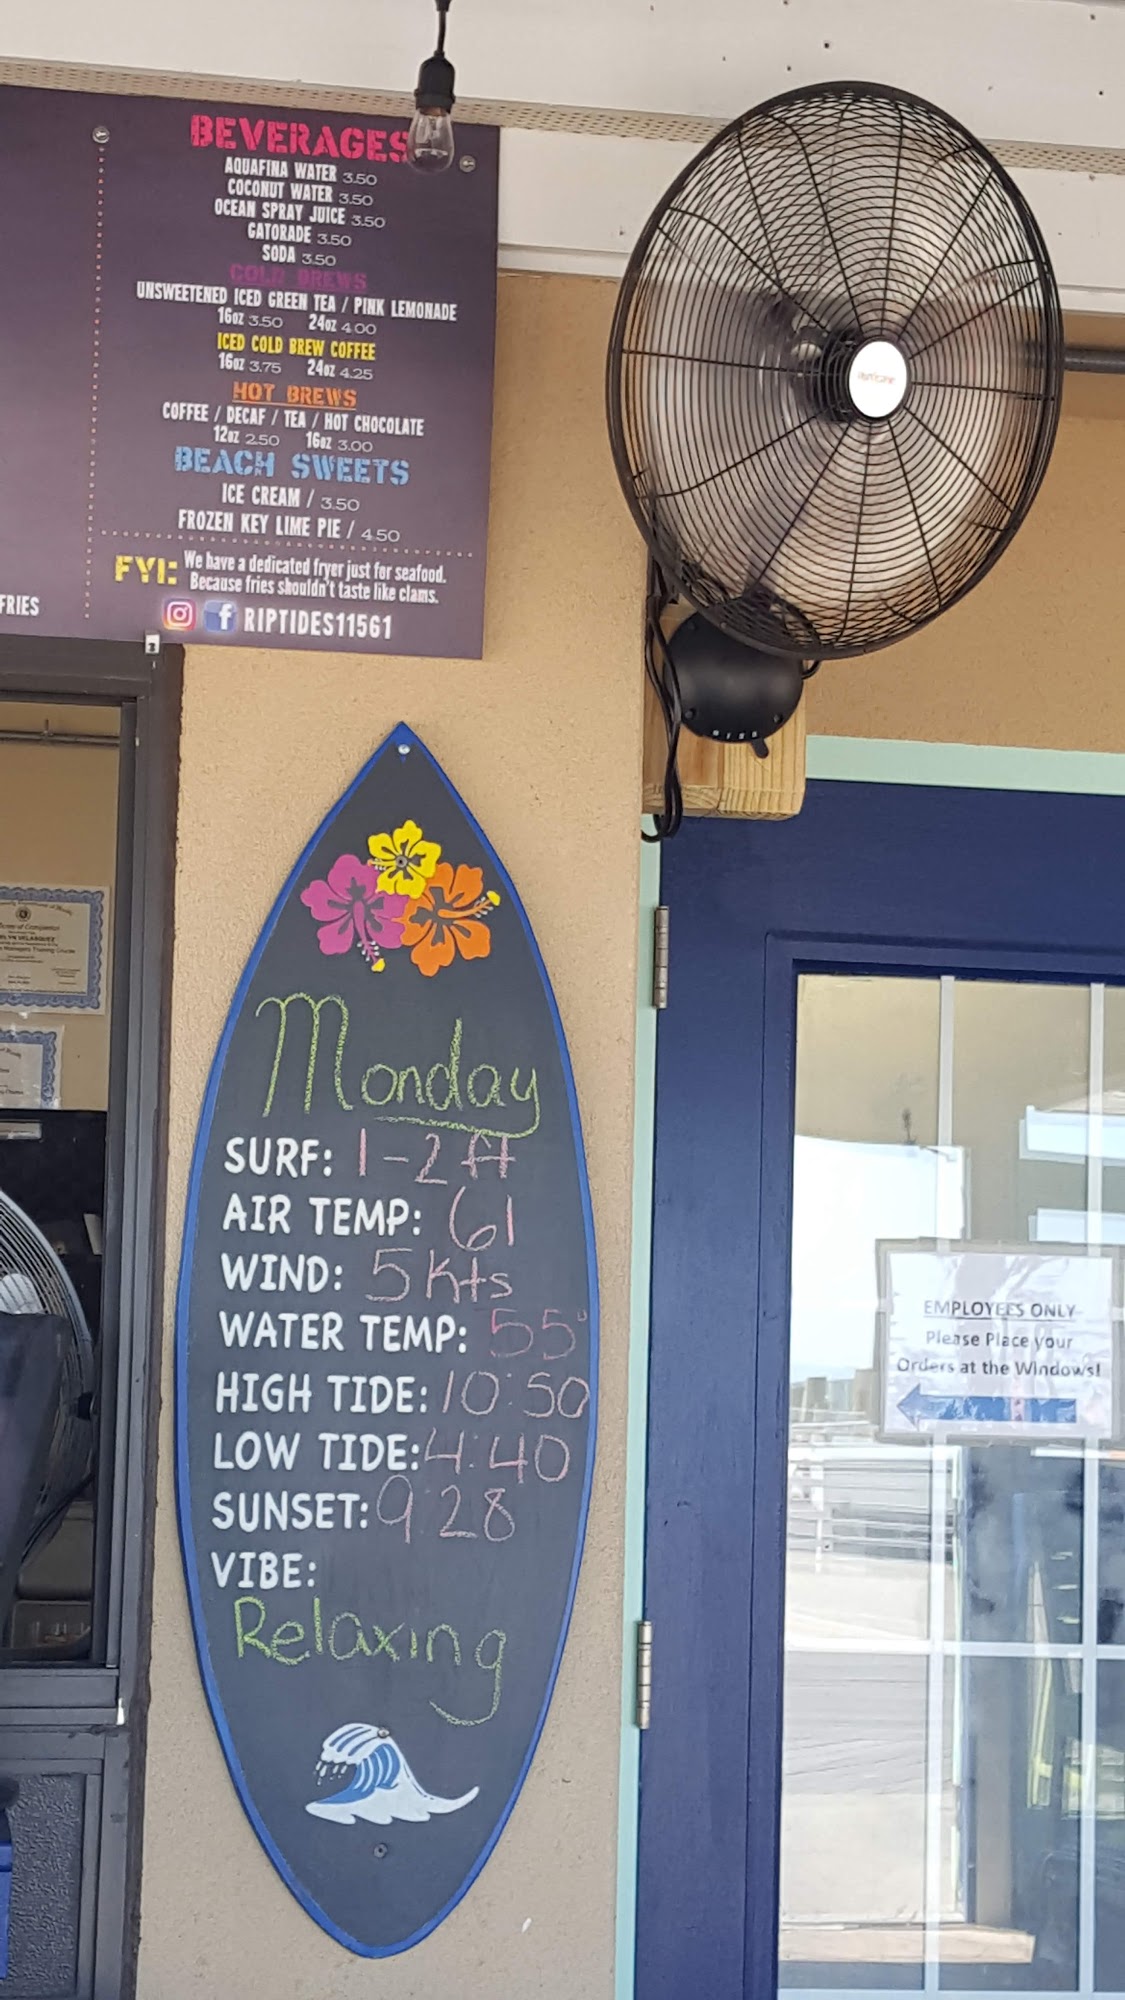 BEVERAGES
AQUAFINA WATER 3.50
COCONUT WATER 3.50
OCEAN SPRAY JUICE 3.50
GATORADE 3.50
SODA 3.50
COLD BREWS
UNSWEETENED ICED GREEN TEA / PINK LEMONADE
16OZ 3.50 24OZ 4.00
ICED COLD BREW COFFEE
16OZ 3.75 24OZ 4.25
HOT BREWS
COFFEE / DECAF / TEA / HOT CHOCOLATE
12OZ 2.50 16OZ 3.00
BEACH SWEETS
ICE CREAM / 3.50
FROZEN KEY LIME PIE / 4.50
FYI: We have a dedicated fryer just for seafood.
Because fries shouldn't taste like clams.
RIPTIDES11561
FRIES
Monday
SURF: 1-2 ft
AIR TEMP: 61
WIND: 5 Kts
WATER TEMP: 55°
HIGH TIDE: 10:50
LOW TIDE: 4:40
SUNSET: 9:28
VIBE:
Relaxing
EMPLOYEES ONLY
Please Place your
Orders at the Windows!